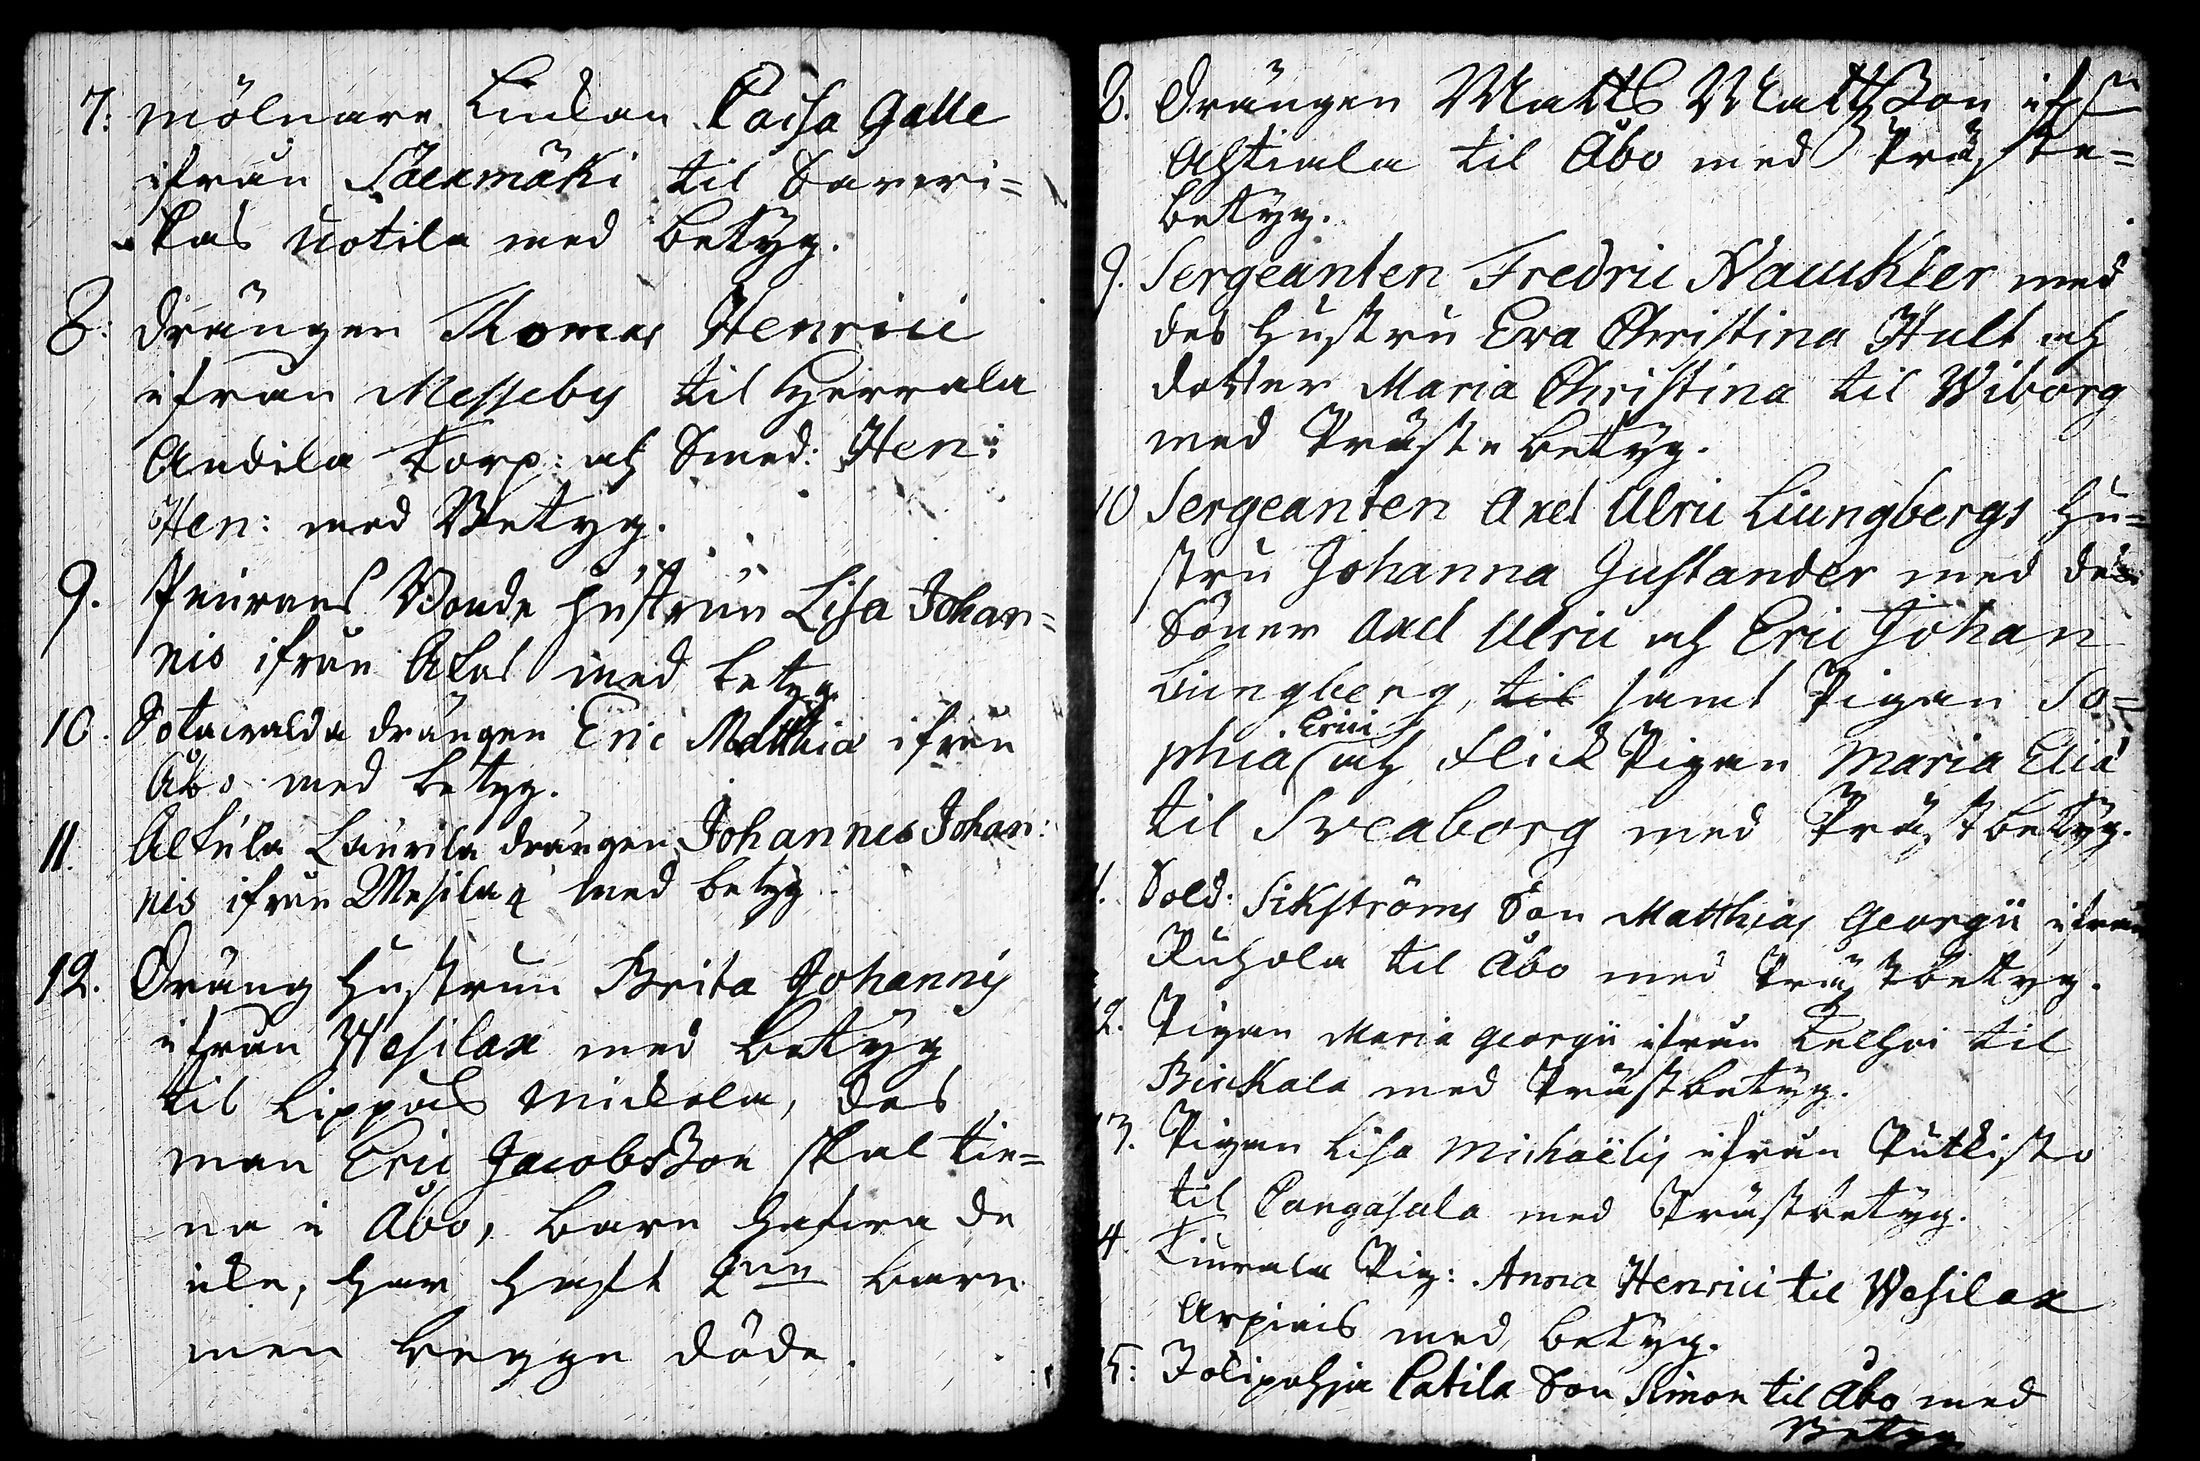 7: mölnare Enkan Caisa Galle
ifrån Säexmäki til Saveri=
kas Uotila med betyg.
8: drängen Thomas Henrici
ifrån Messeby til Herrala
Andila Torp: och Smed: Hen:
Hen: med Betyg.
9. Peurans Bonde hustrun Lisa Johan=
nis ifrån Akas med betyg
10. Sotavalda drängen Eric Matthiæ ifrån
Åbo med betyg.
11. Alkula Laurila drängen Johannes Johan:
nis ifrån Wesilax med betyg.
12. Dräng hustrun Brita Johannis
ifrån Wesilax med betyg
til Lippas Mickola, des
man Eric Jacobsson skal tie=
na i Åbo, barn hafva de
icke, har haft 2nne barn
men begge döde.
8. Drängen Matts Mattsson ifrån
Ahtiala til Åbo med Präste=
betyg.
9. Sergeanten Fredric Nauckler med
des hustru Eva Christina Hult och
dotter Maria Christina til Wiborg
med Präste betyg.
10 Sergeanten Axel Ulric Liungbergs hu=
stru Johanna Gustander med des
Söner Axel Ulric och Eric Johan
Liungberg, til samt Pigan So=
phia Erici och Flick Pigan Maria Eliæ
til Sveaborg med Prästbetyg.
1. Sold: Sikströms Son Matthias Georgii ifrån
Ruhola til Åbo med Prästbetyg.
2. Pigan Maria Georgii ifrån Kelhoi til
Birckala med Prästbetyg.
3. Pigan Lisa Michaëlis ifrån Putkisto
til Cangasala med Prästbetyg.
4. Kiurala Pig: Anna Henrici til Wesilax
Arpiais med betyg.
5: Jolipohja Catila Son Simon til Åbo med
Betyg